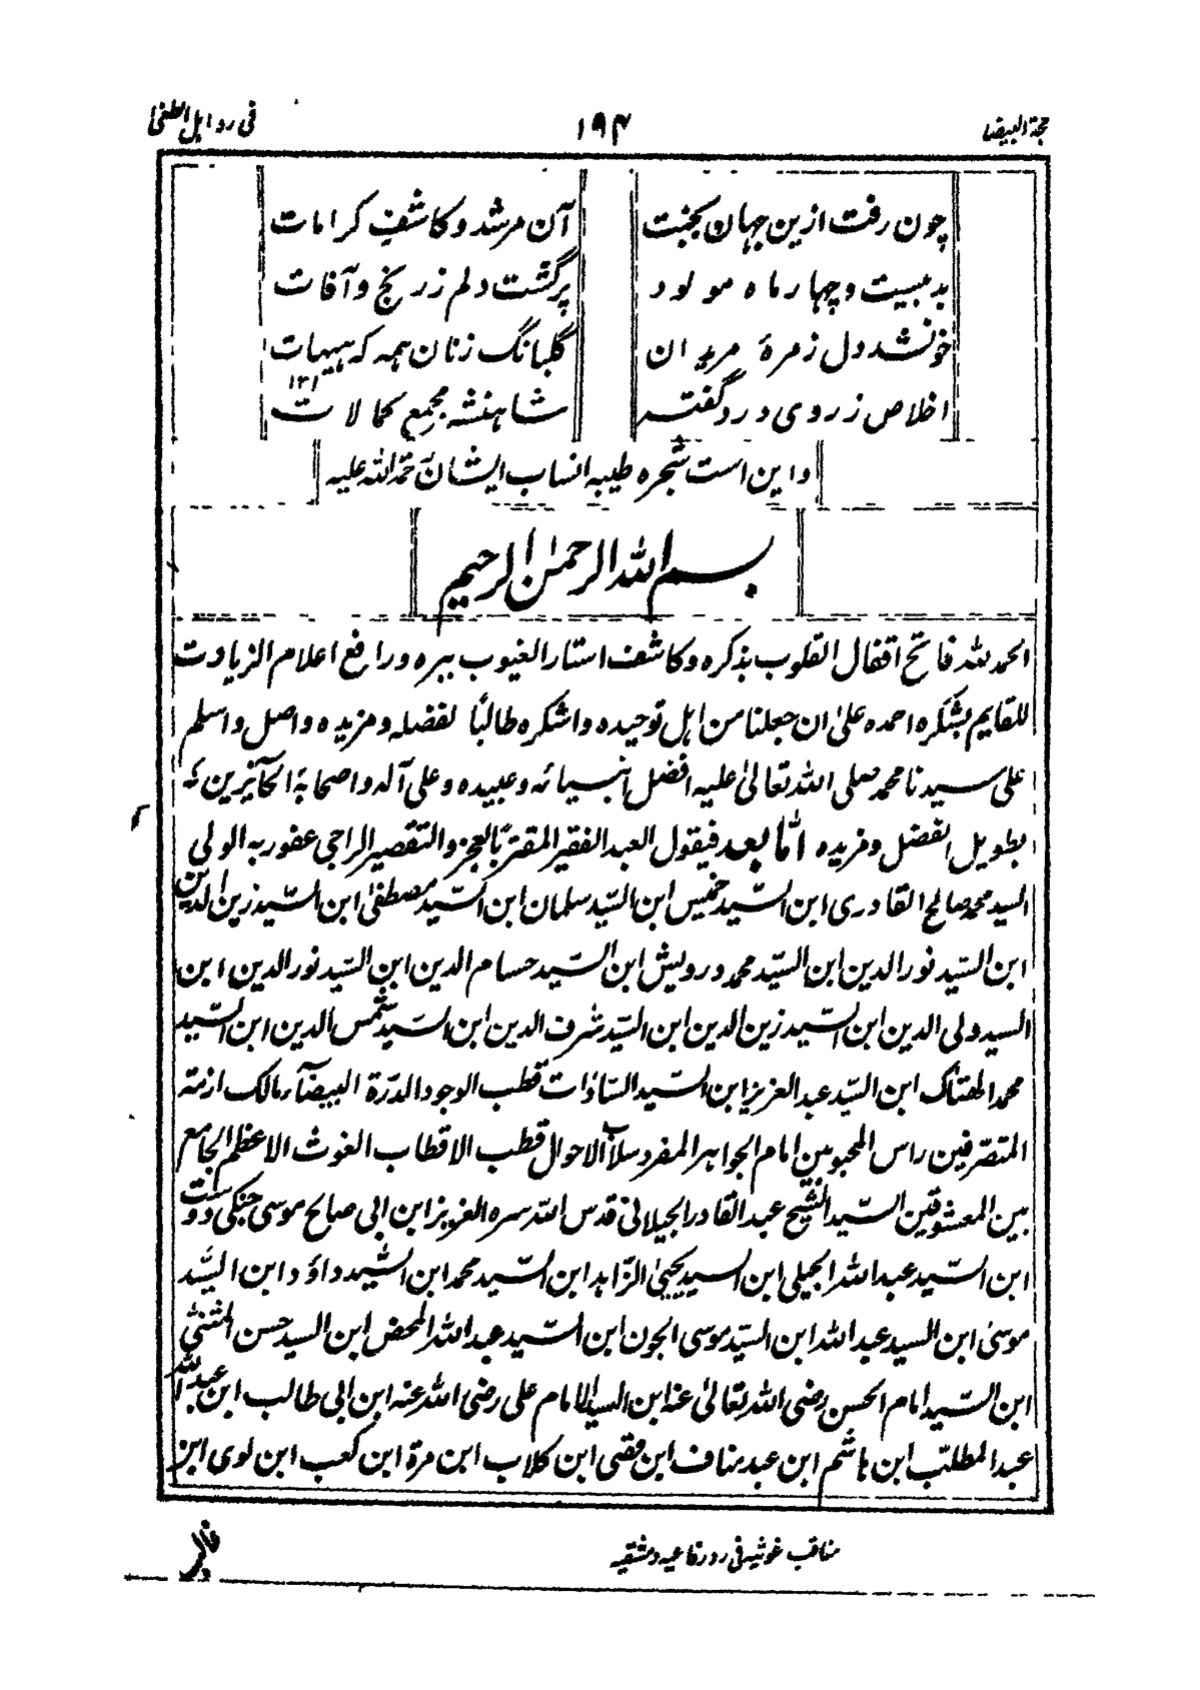 حجة البيضا
۱۹۴
فی رد اہل الطغیٰ
چون رفت ازین جہان بجنت
آن مرشد و کاشفِ کرامات
بد بیست و چہار ماہ مولود
پرگشت دلم ز رنج و آفات
خونشد دل زمرۂ مریدان
گلبانگ زنان ہمہ کہ ہیہات
اخلاص ز روی درد گفتہ
شاہنشہ مجمع کمالات
و این است شجرہ طیبہ انساب ایشان رحمۃ اللہ علیہ
بسم اللہ الرحمٰن الرحیم
الحمد للہ فاتح اقفال القلوب بذکرہ و کاشف استار الغیوب ببرہ و رافع اعلام الزیادت
للقایم بشکرہ احمدہ علیٰ ان جعلنا من اہل توحیدہ و اشکرہ طالبًا لفضلہ و مزیدہ و اصل و اسلم
علی سیدنا محمد صلی اللہ تعالیٰ علیہ افضل انبیائہ و عبیدہ و علی آلہ و اصحابہ الحآئزین
بطویل الفضل و مزیدہ امّا بعد فیقول العبد الفقیر المقرّ بالعجز والتقصیر الراجی عفو ربہ الولی
السید محمد صالح القادری ابن السّید خمیس ابن السّید سلمان ابن السّید مصطفیٰ ابن السّید زین الدین
ابن السّید نور الدین ابن السّید محمد درویش ابن السّید حسام الدین ابن السّید نور الدین ابن
السید ولی الدین ابن السّید زین الدین ابن السّید شرف الدین ابن السّید شمس الدین ابن السّید
محمد الہتاک ابن السّید عبد العزیز ابن السّید السّادات قطب الوجود الدّرۃ البیضآء مالک ازمۃ
المتصرفین راس المحبوبین امام الجواہر المفرد الاحوال قطب الاقطاب الغوث الاعظم الجامع
بین المعشوقین السّید الشیخ عبد القادر الجیلانی قدس اللہ سرہ العزیز ابن ابی صالح موسی جنگی دوست
ابن السّید عبد اللہ الجیلی ابن السید یحییٰ الزّاہد ابن السّید محمد ابن السّید داؤد ابن السّید
موسیٰ ابن السید عبد اللہ ابن السّید موسی الجون ابن السّید عبد اللہ المحض ابن السید حسن المثنیٰ
ابن السّید امام الحسن رضی اللہ تعالیٰ عنہ ابن السید الامام علی رضی اللہ عنہ ابن ابی طالب ابن عبد اللہ
عبد المطلّب ابن ہاشم ابن عبد مناف ابن قصی ابن کلاب ابن مرۃ ابن کعب ابن لوی ابن
مناقب غوثیہ فی رد رفاعیہ دمشقیہ